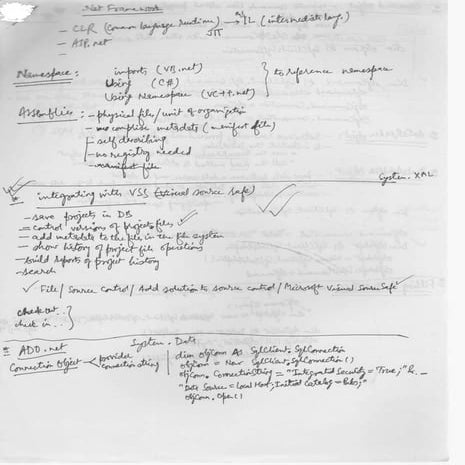 Net Framework
- CLR (Common language runtime) → IL (intermediate lang.)
JIT
- ASP.net
Namespace : imports (VB.net)
Using (C#)
Using Namespace (VC++.net)
to reference namespace
Assemblies : - physical files/unit of organization
- comprise metadata (manifest file)
- self describing
- no registry needed
- manifest file
System.XML
* integrating with VSS (Visual source safe)
- save projects in DB
- control versions of project files ✓
- add metadata to the file in the file system
- show history of project file operations
- build reports of project history
- search
✓ File / Source control / Add solution to source control / Microsoft Visual SourceSafe
check out..
check in..
System.Data
ADO.net
Connection Object < provider
connection string
dim objConn As SqlClient.SqlConnection
objConn = New SqlClient.SqlConnection()
objConn.ConnectionString = "Integrated Security = True;" & _
"Data Source = Local Host; Initial Catalog = Pubs;"
objConn.Open()